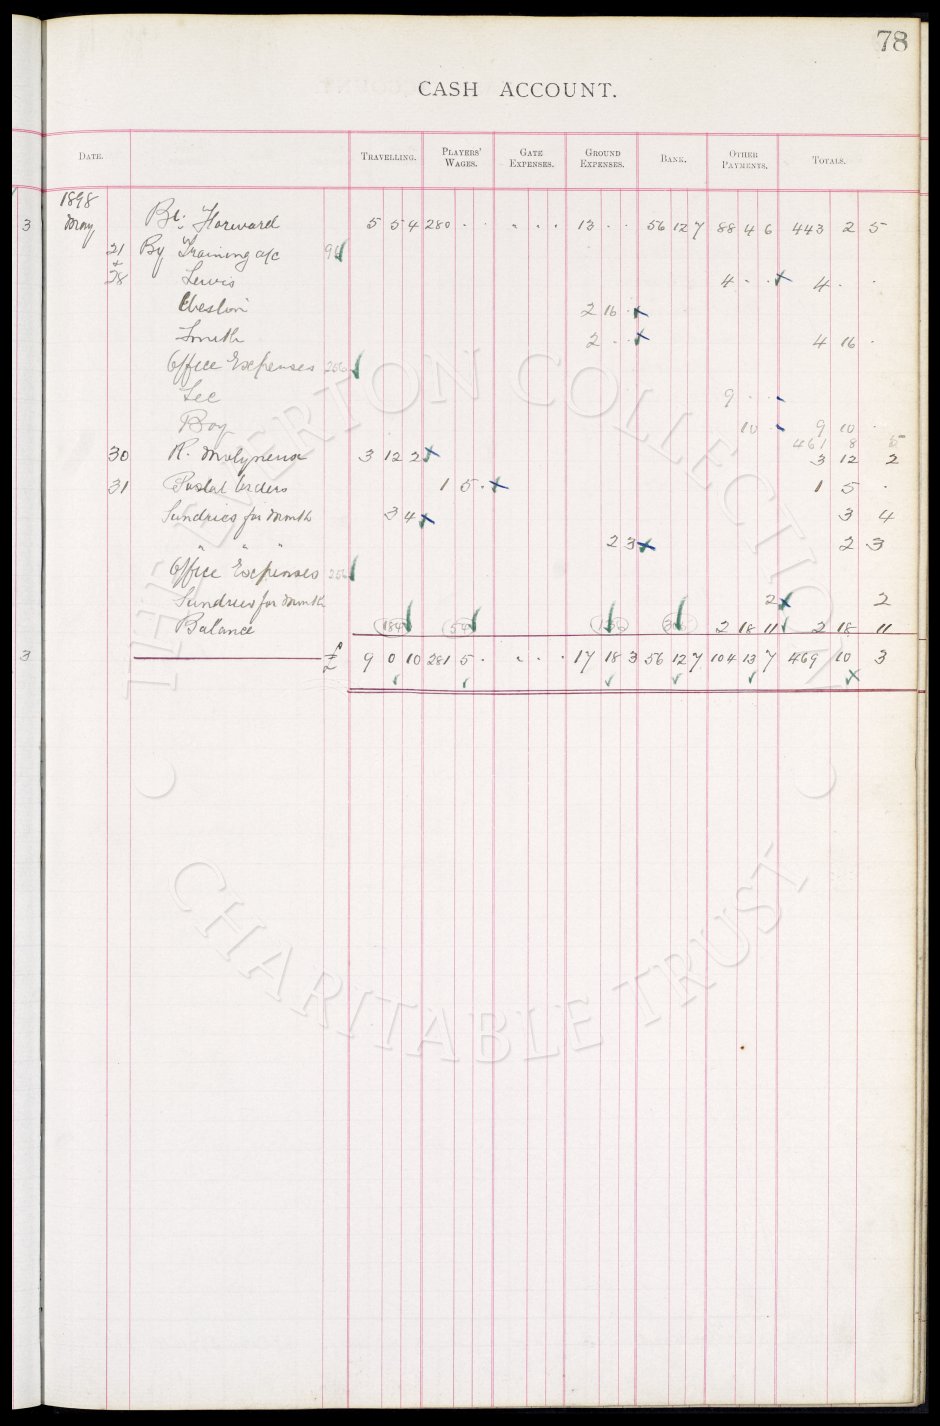 78
CASH ACCOUNT.
DATE. TRAVELLING. PLAYERS' WAGES. GATE EXPENSES. GROUND EXPENSES. BANK. OTHER PAYMENTS. TOTALS.
1898
3 May Bt. Forward 5 5 4 280 . . " . . 13 . . 56 12 7 88 4 6 443 2 5
21 By Training a/c
+
28 Lewis 4 . . 4 . .
Weston 2 16 .
Smith 2 . . 4 16 .
Office Expenses 256
Lee 9 . .
Boy 10 . 9 10 .
461 8 5
30 R. Molyneux 3 12 2 3 12 2
31 Postal Orders 1 5 . 1 5 .
Sundries for Month 3 4 3 4
" " " 2 3 2 3
Office Expenses 256
Sundries for Month 2 2
Balance 184 54 2 18 11 2 18 11
3 9 0 10 281 5 . " . . 17 18 3 56 12 7 104 13 7 469 10 3
THE EVERTON COLLECTION
CHARITABLE TRUST